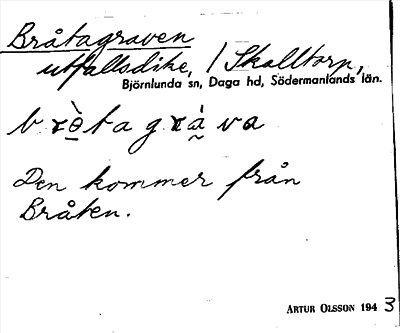 Bråtagraven
utfallsdike, / Skalltorp,
Björnlunda sn, Daga hd, Södermanlands län.
brɵ̀tagràva
Den kommer från
Bråten.
ARTUR OLSSON 1943